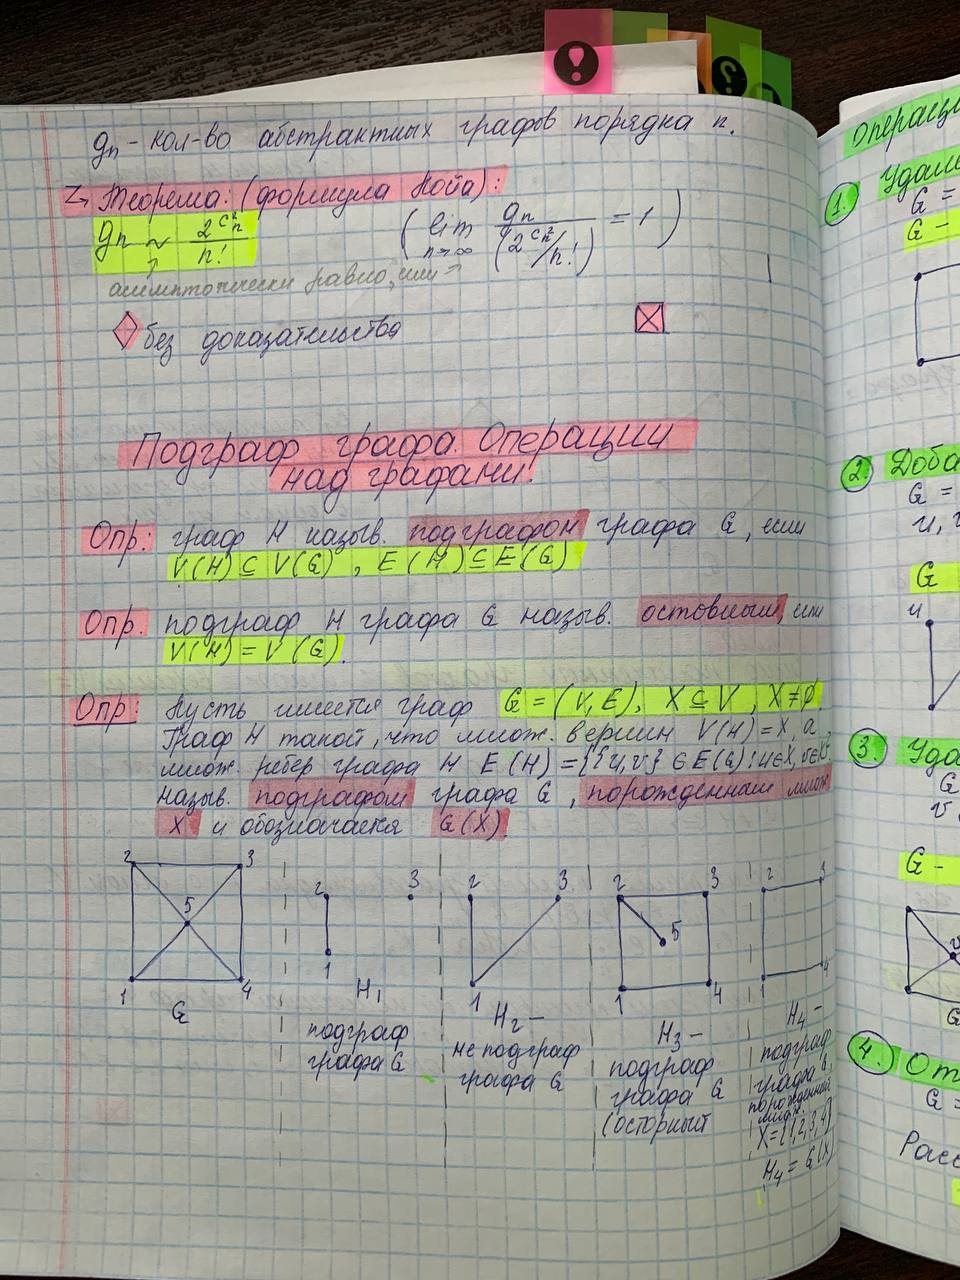 gₙ - кол-во абстрактных графов порядка n.
Теорема: (формула Пойа):
gₙ ~ 2^{C_n^2} / n! ( lim_{n→∞} gₙ / (2^{C_n^2} / n!) = 1 )
асимптотически равно, или →
без доказательства
Подграф графа. Операции
над графами.
Опр: граф H назыв. подграфом графа G, если
V(H) ⊆ V(G), E(H) ⊆ E(G)
Опр. подграф H графа G назыв. остовным, если
V(H) = V(G).
Опр: Пусть имеется граф G = (V, E), X ⊆ V, X ≠ ∅
Граф H такой, что множ. вершин V(H) = X, а
множ. ребер графа H E(H) = {{u,v} ∈ E(G): u∈X, v∈X}
назыв. подграфом графа G, порожденным множ.
X и обозначается G(X)
2 3 5 1 4
G
2 3 1
H₁
подграф
графа G
2 3 1
H₂ –
не подграф
графа G
2 3 5 1 4
H₃ –
подграф
графа G
(остовный
2 3 1 4
H₄ –
подграф
графа G,
порожденный
множ.
X = {1,2,3,4}
H₄ = G(X)
Операци
1. Удале
G =
G -
2. Доба
G =
u, v
G
u
3. Уда
G
v
G -
v
G
4. От
G =
Расс